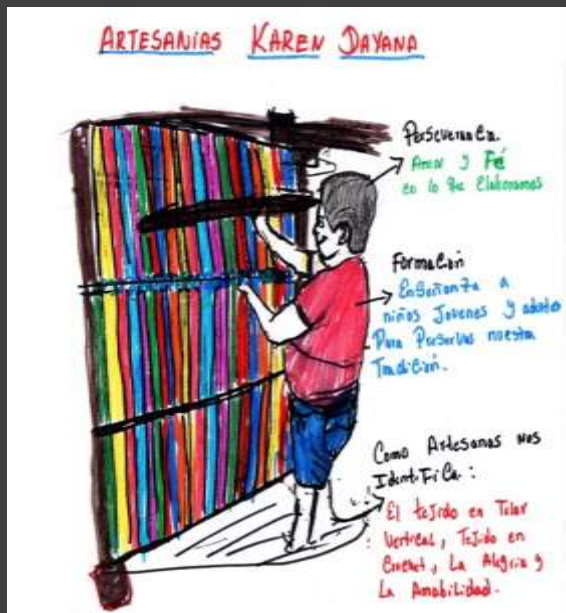 ARTESANIAS KAREN DAYANA
Perseverancia.
Amor y Fé
en lo que Elaboramos
Formación
Enseñanza a
niños Jovenes y adultos
Para Perservar nuestra
Tradición.
Como Artesanas Nos
Identifica:
El tejido en Telar
Vertical, Tejido en
Crochet, La Alegria y
La Amabilidad.